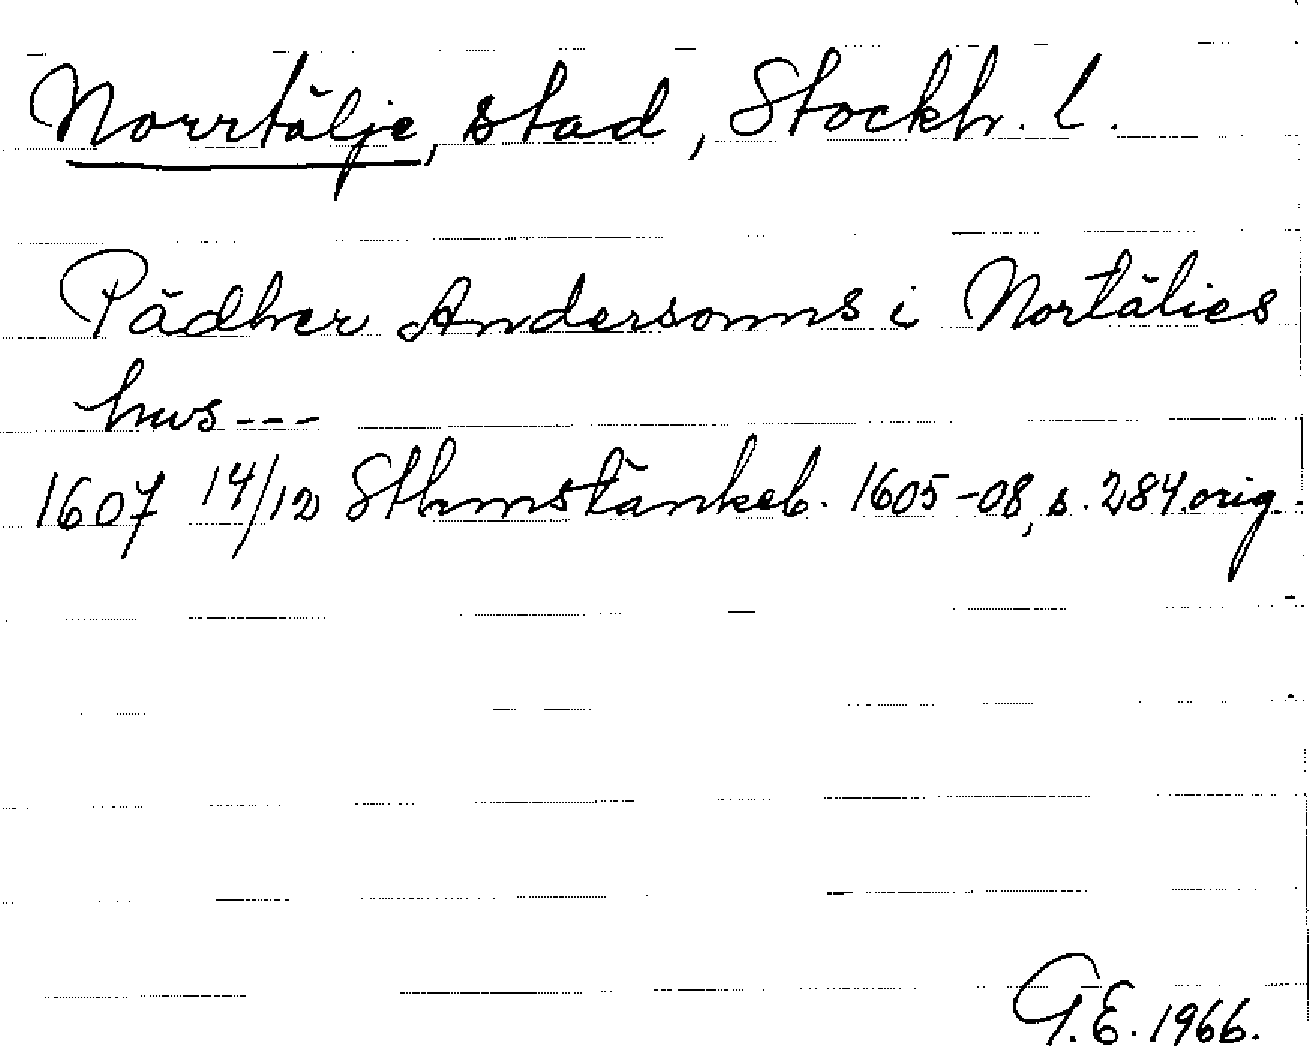 Norrtälje, stad, Stockh. l.
Pädher Andersonns i Nortälies
hws---
1607 14/12 Sthmstänkeb. 1605-08, s. 284.orig.
G.E. 1966.